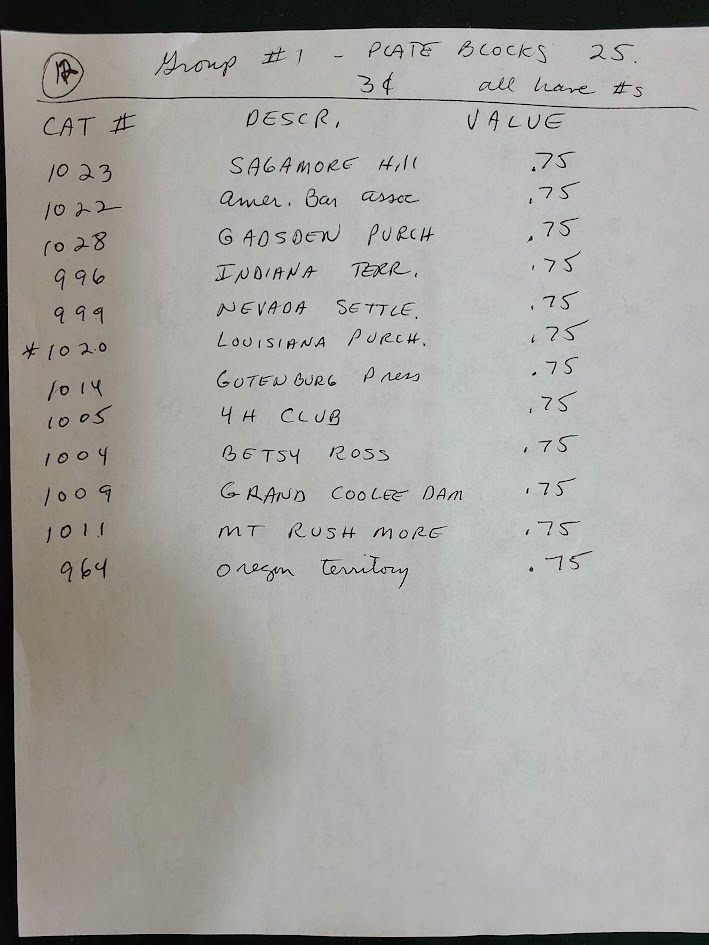 12 Group #1 - PLATE BLOCKS 25.
3¢ all have #s
CAT # DESCR. VALUE
1023 SAGAMORE Hill .75
1022 Amer. Bar assoc .75
1028 GADSDEN PURCH .75
996 INDIANA TERR. .75
999 NEVADA SETTLE. .75
*1020 LOUISIANA PURCH. .75
1014 GUTENBURG Press .75
1005 4H CLUB .75
1004 BETSY ROSS .75
1009 GRAND COOLEE DAM .75
1011 MT RUSH MORE .75
964 Oregon territory .75